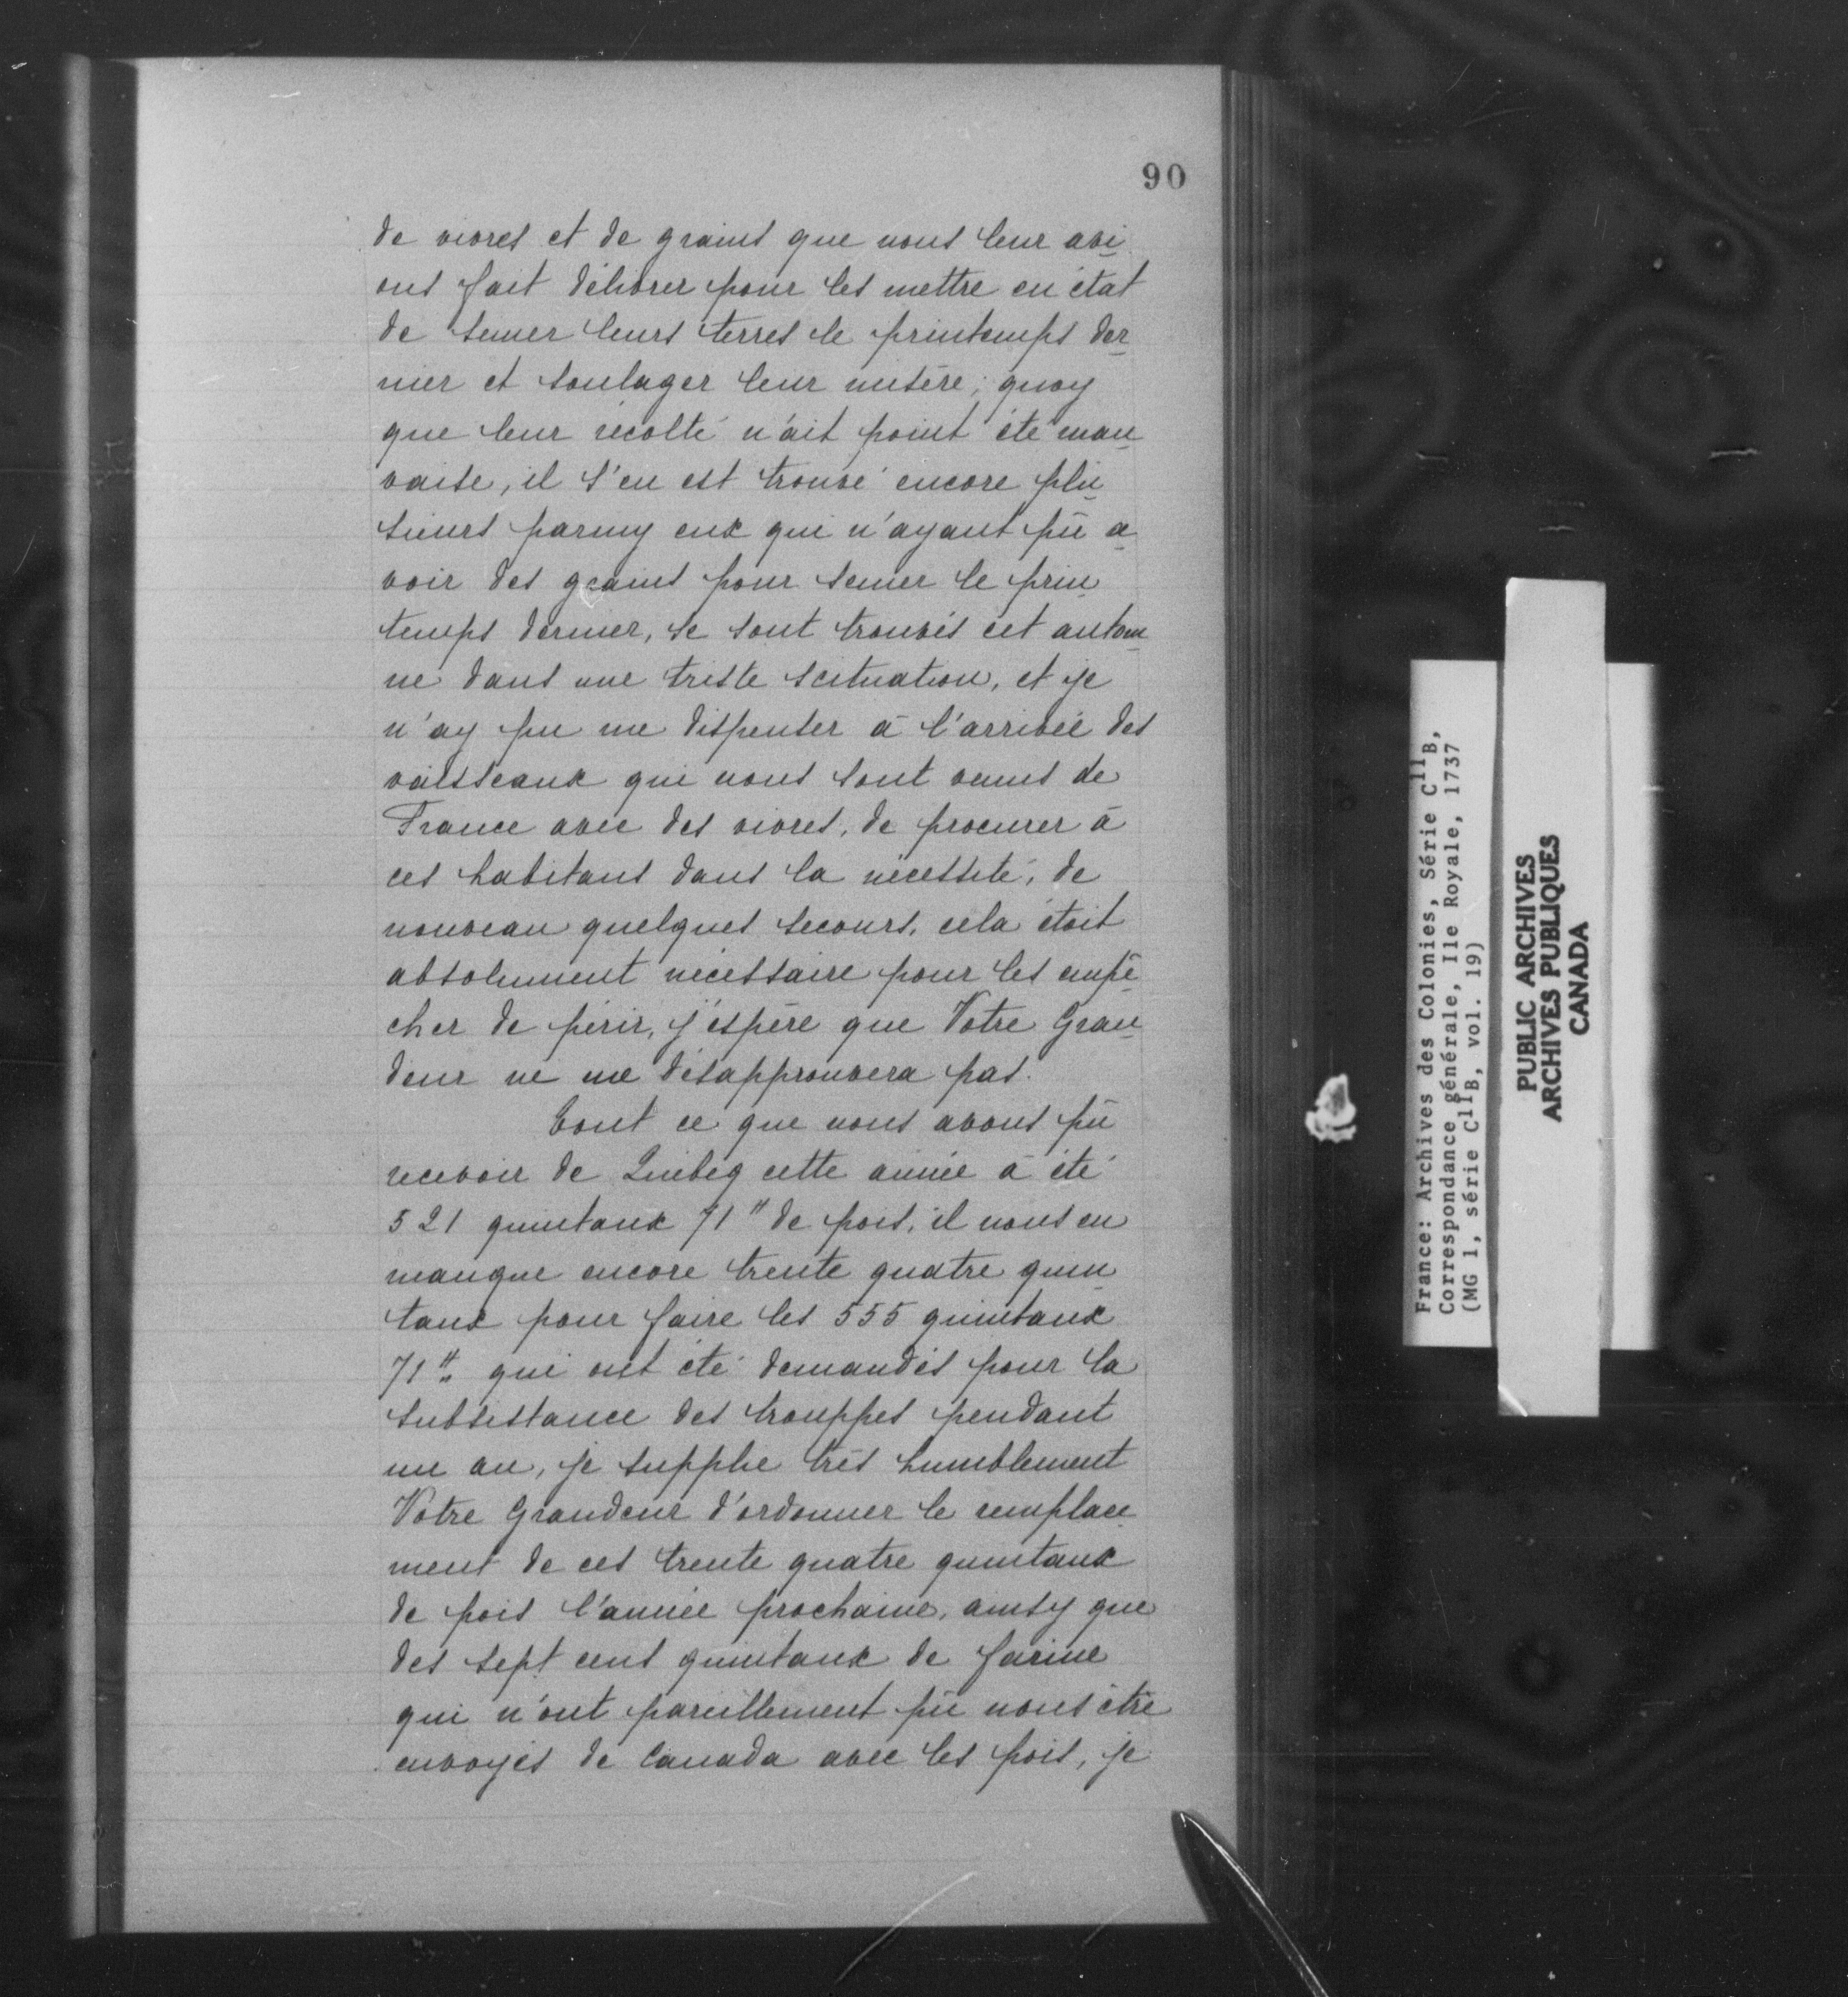 90
de vivres et de grains que nous leur avi
ons fait délivrer pour les mettre en état
de semer leurs terres le printemps der
nier et soulager leur misère; quoy
que leur récolte n'ait point été mau
vaise, il s'en est trouvé encore plu
sieurs parmy eux qui n'ayant pû a
voir des grains pour semer le prin
temps dernier, se sont trouvés cet autom
ne dans une triste scituation, et je
n'ay pu me dispenser à l'arrivée des
vaisseaux qui nous sont venus de
France avec des vivres, de procurer à
ces habitans dans la nécessité, de
nouveau quelques secours, cela étoit
absolument nécessaire pour les empê
cher de périr, j'espère que Votre Gran
deur ne me désapprouvera pas.
Tout ce que nous avons pû
recevoir de Quebeq cette année a été
521 quintaux 71" de pois, il nous en
manque encore trente quatre quin
taux pour faire les 555 quintaux
71" qui ont été demandés pour la
subsistance des trouppes pendant
un an, je supplie très humblement
Votre Grandeur d'ordonner le remplace
ment de ces trente quatre quintaux
de pois l'année prochaine, ainsy que
des sept cent quintaux de farine
qui n'ont pareillement pû nous être
envoyés de Canada avec les pois, je
France: Archives des Colonies, Série C11B,
Correspondance générale, Ile Royale, 1737
(MG 1, série C11B, vol. 19)
PUBLIC ARCHIVES
ARCHIVES PUBLIQUES
CANADA